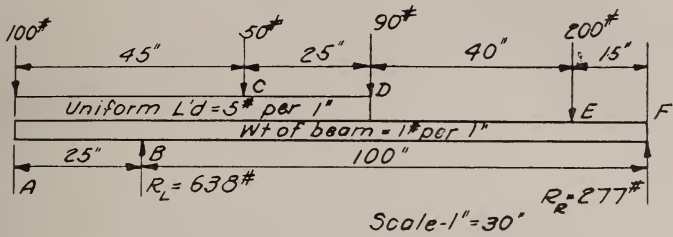 100# 50# 90# 200#
45" 25" 40" 15"
C D E F
Uniform L'd = 5# per 1"
Wt of beam = 1# per 1"
25" 100"
A B
R_L = 638# R_R = 277#
Scale-1" = 30"